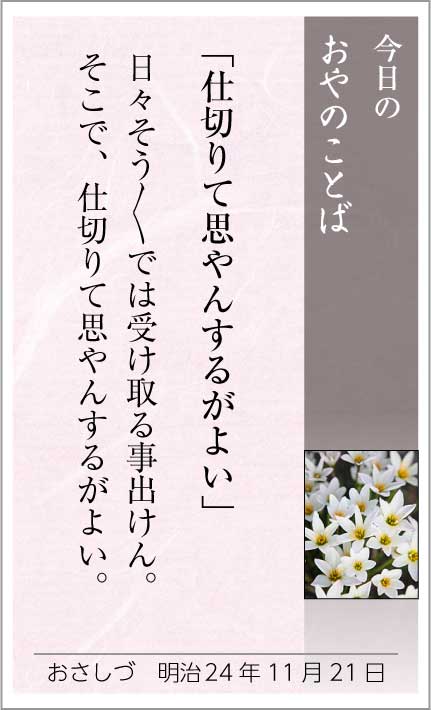 今日の
おやのことば
「仕切りて思やんするがよい」
日々そう〳〵では受け取る事出けん。
そこで、仕切りて思やんするがよい。
おさしづ　明治24年11月21日